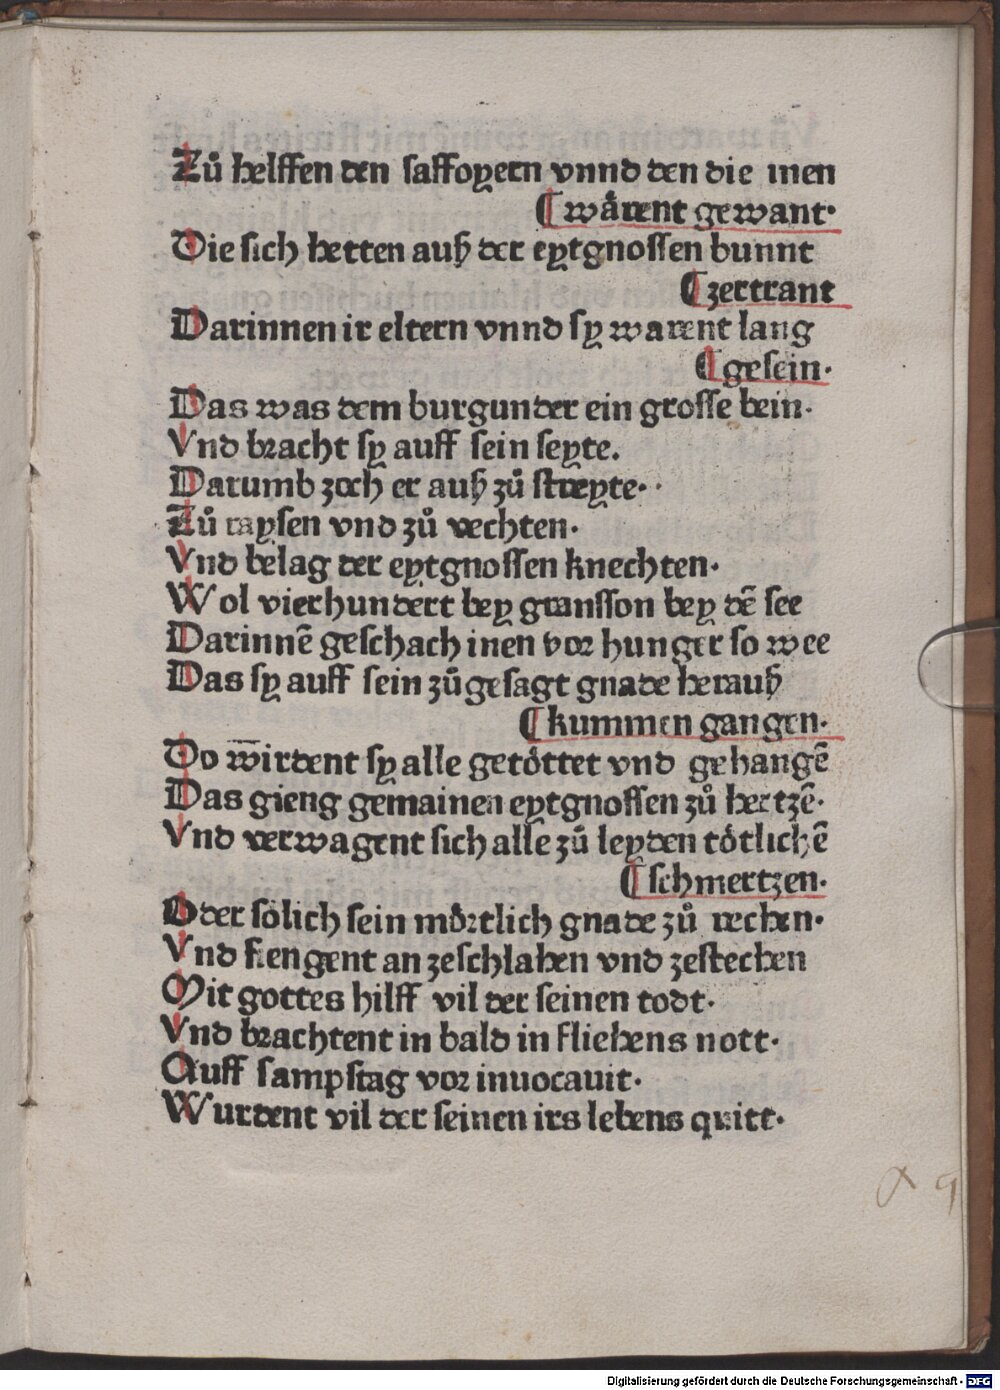 Zů helffen den saffoyern vnnd den die inen
⸿ wårent gewant·
Die sich hetten auß der eytgnossen bunnt
⸿ zertrant
Darinnen ir eltern vnnd sy warent lang
⸿ gesein·
Das was dem burgunder ein grosse bein·
Vnd bracht sy auff sein seyte.
Darumb zoch er auß zů streyte·
Zů raysen vnd zů vechten·
Vnd belag der eytgnossen knechten·
Wol vierhundert bey gransson bey dē see
Darinnē geschach inen vor hunger so wee
Das sy auff sein zůgesagt gnade herauß
⸿ kummen gangen·
Do wirdent sy alle getöttet vnd gehangē
Das gieng gemainen eytgnossen zů hertzē·
Vnd verwagent sich alle zů leyden tötlichē
⸿ schmertzen·
Oder sölich sein mörtlich gnade zů rechen·
Vnd fiengent an zeschlahen vnd zestechen
Mit gottes hilff vil der seinen todt·
Vnd brachtent in bald in fliehens nott·
Auff sampstag vor inuocauit·
Wurdent vil der seinen irs lebens quitt·
Digitalisierung gefördert durch die Deutsche Forschungsgemeinschaft - DFG